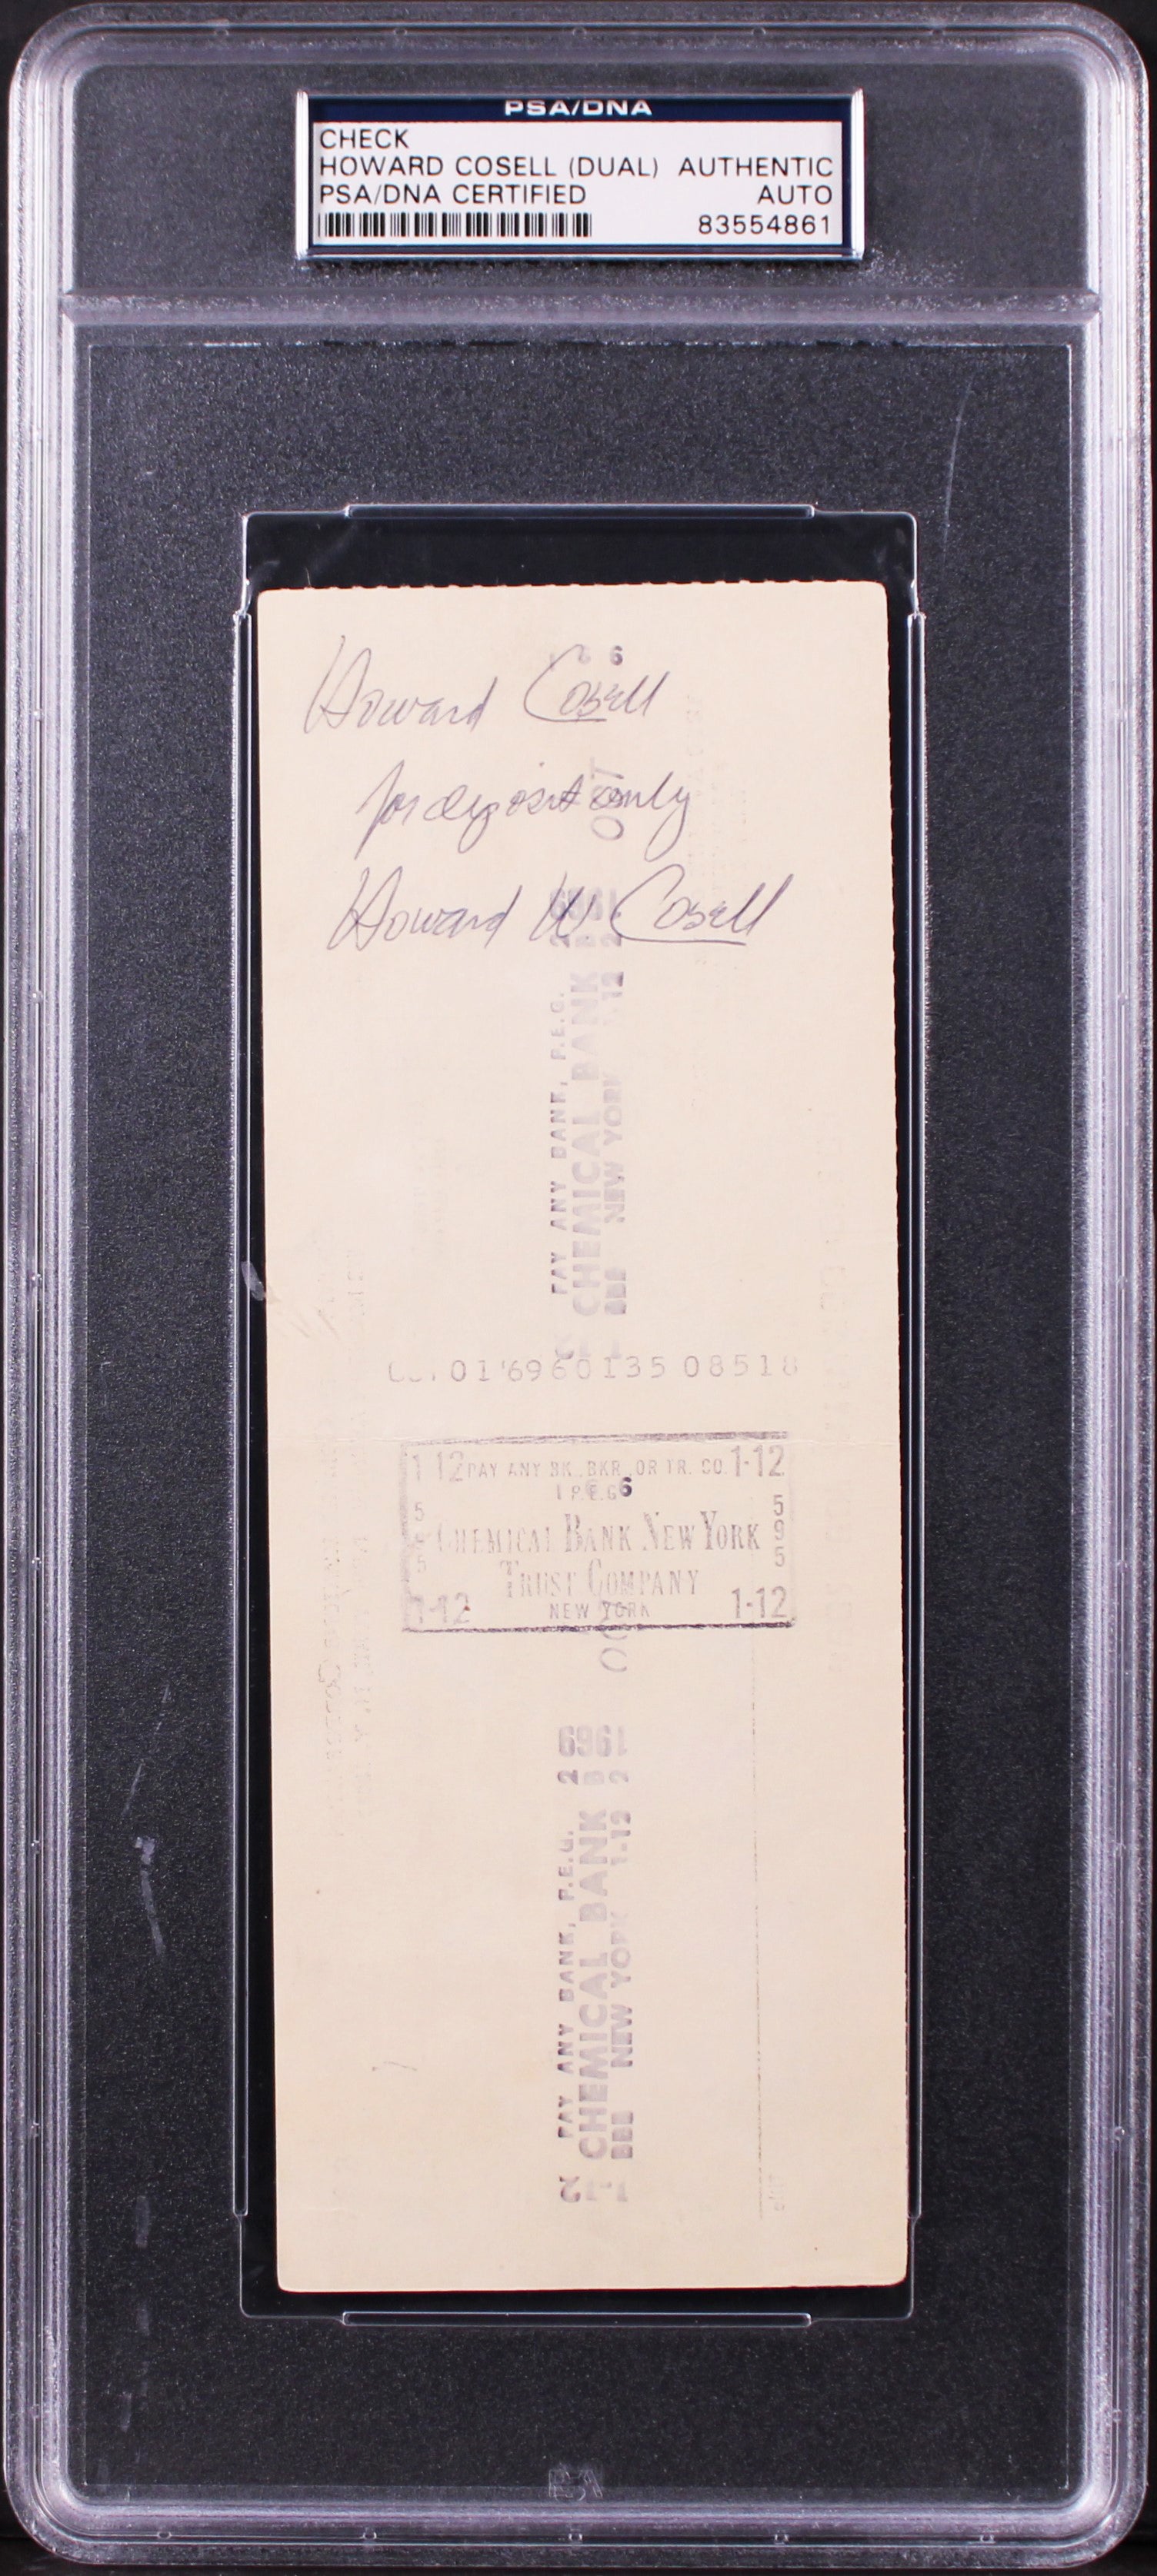 PSA/DNA
CHECK
HOWARD COSELL (DUAL) AUTHENTIC
PSA/DNA CERTIFIED AUTO
83554861
6
Howard Cosell
for deposit only
Howard W Cosell
1969
PAY ANY BANK, P.E.G.
CHEMICAL BANK
NEW YORK 1-12
01 '69 60135 08518
1-12 PAY ANY BK., BKR., OR TR. CO. 1-12
P.E.G. 6
5 9 5 CHEMICAL BANK NEW YORK 5 9 5
TRUST COMPANY
1-12 NEW YORK 1-12
2 1969
PAY ANY BANK, P.E.G.
CHEMICAL BANK
NEW YORK 1-12
PSA